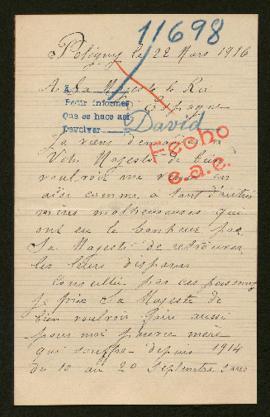 11698
Poligny le 22 Mars 1916
A Sa Majesté le Roi
Pedir informes
Que se hace así
Devolver
Espagne
David
Je viens
Votre Majesté de bien
vouloir me venir en
aide comme a tant d'autres
mères malheureuses qui
ont eu le bonheur par
Sa Majesté de retrouver
les leurs disparus
Fecho
e.a.e.
par ces personnes
je prie Sa Majesté de
bien vouloir faire aussi
pour moi pauvre mère
qui souffre depuis 1914
du 10 au 20 Septembre sans